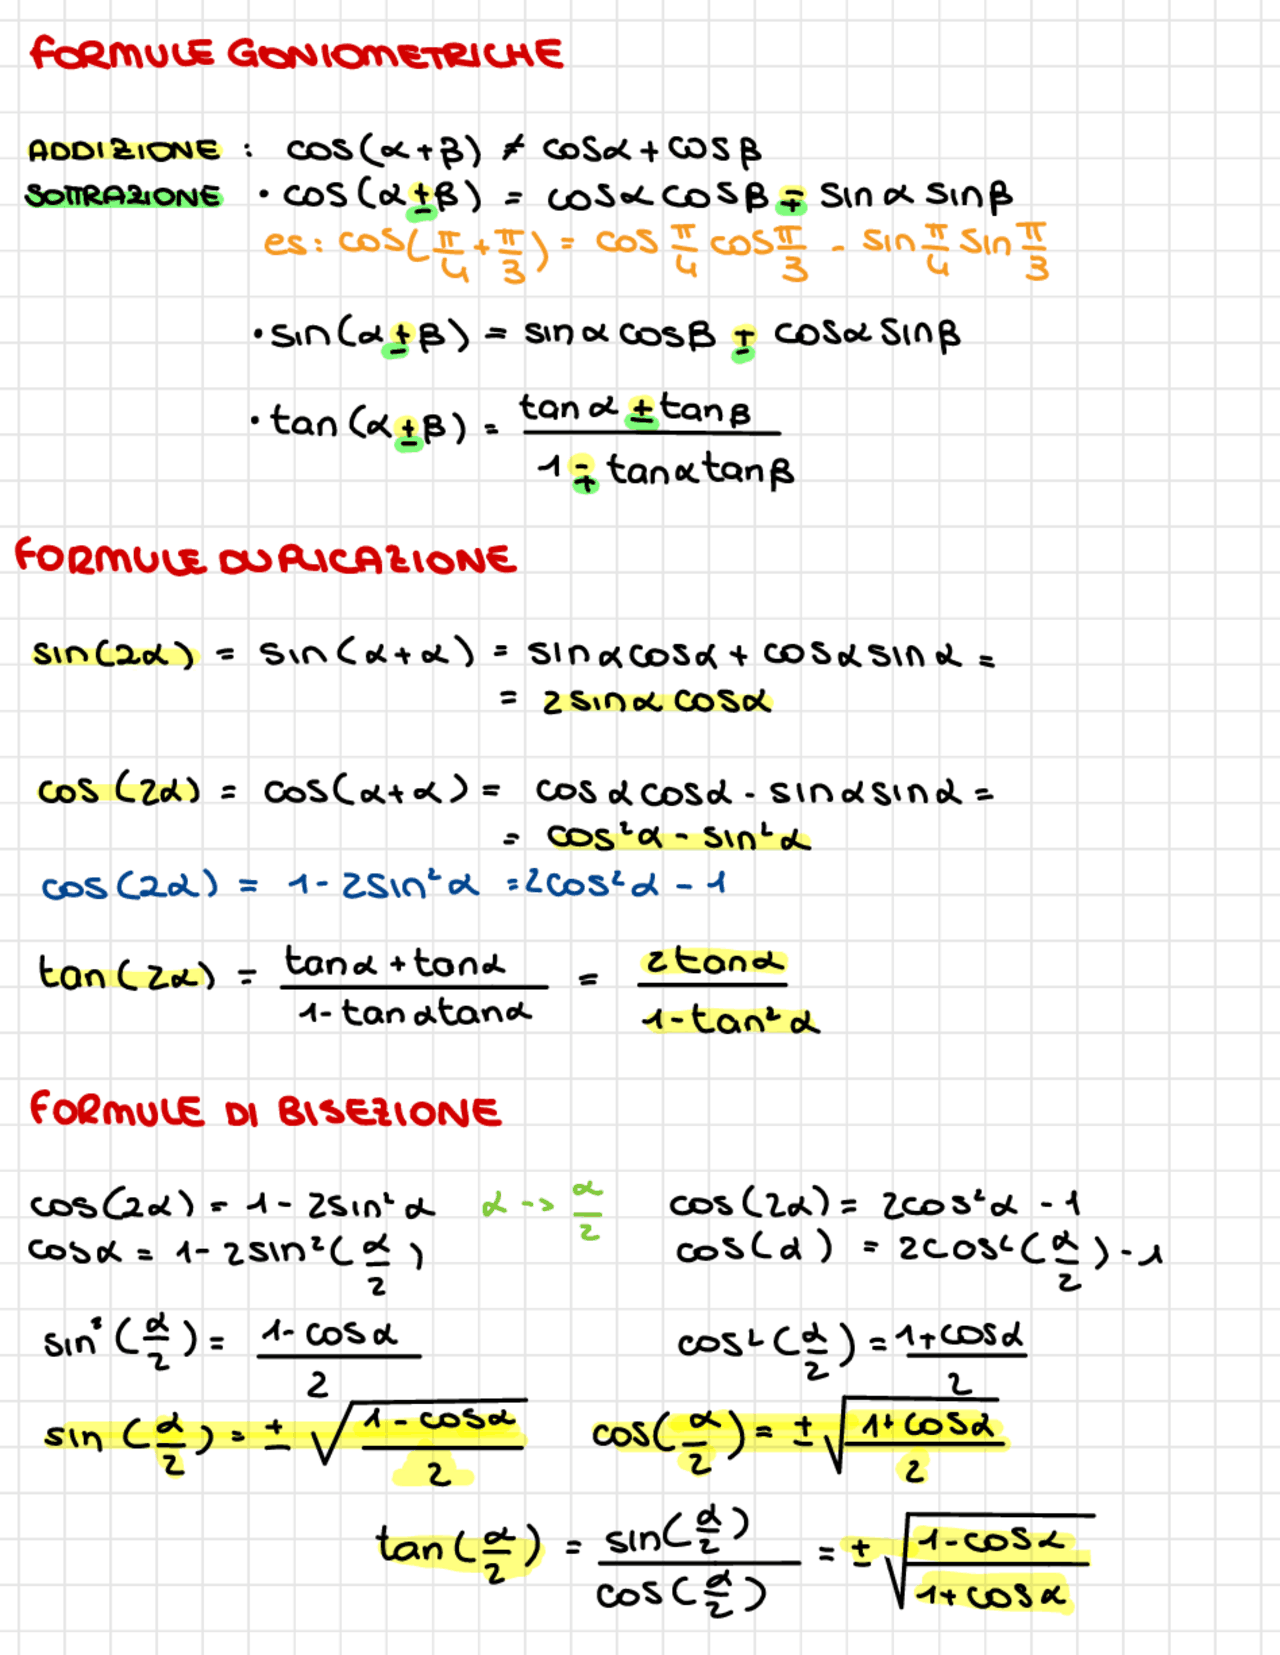 FORMULE GONIOMETRICHE
ADDIZIONE : cos(α+β) ≠ cosα + cosβ
SOTTRAZIONE • cos(α±β) = cosα cosβ ∓ sinα sinβ
es: cos(π/4 + π/3) = cos π/4 cos π/3 - sin π/4 sin π/3
• sin(α±β) = sinα cosβ ± cosα sinβ
• tan(α±β) = (tanα ± tanβ)/(1 ∓ tanα tanβ)
FORMULE DUPLICAZIONE
sin(2α) = sin(α+α) = sinα cosα + cosα sinα =
= 2 sinα cosα
cos(2α) = cos(α+α) = cosα cosα - sinα sinα =
= cos²α - sin²α
cos(2α) = 1 - 2sin²α = 2cos²α - 1
tan(2α) = (tanα + tanα)/(1 - tanα tanα) = (2tanα)/(1 - tan²α)
FORMULE DI BISEZIONE
cos(2α) = 1 - 2sin²α α -> α/2 cos(2α) = 2cos²α - 1
cosα = 1 - 2sin²(α/2) cos(α) = 2cos²(α/2) - 1
sin²(α/2) = (1 - cosα)/2 cos²(α/2) = (1 + cosα)/2
sin(α/2) = ± √((1 - cosα)/2) cos(α/2) = ± √((1 + cosα)/2)
tan(α/2) = sin(α/2)/cos(α/2) = ± √((1 - cosα)/(1 + cosα))